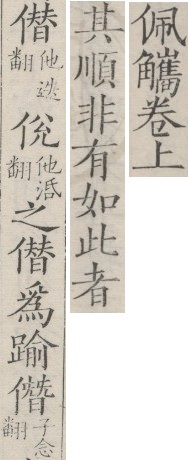 佩觿卷上
其順非有如此者
僣他迭翻侻他活翻之僣為踰僭子念翻